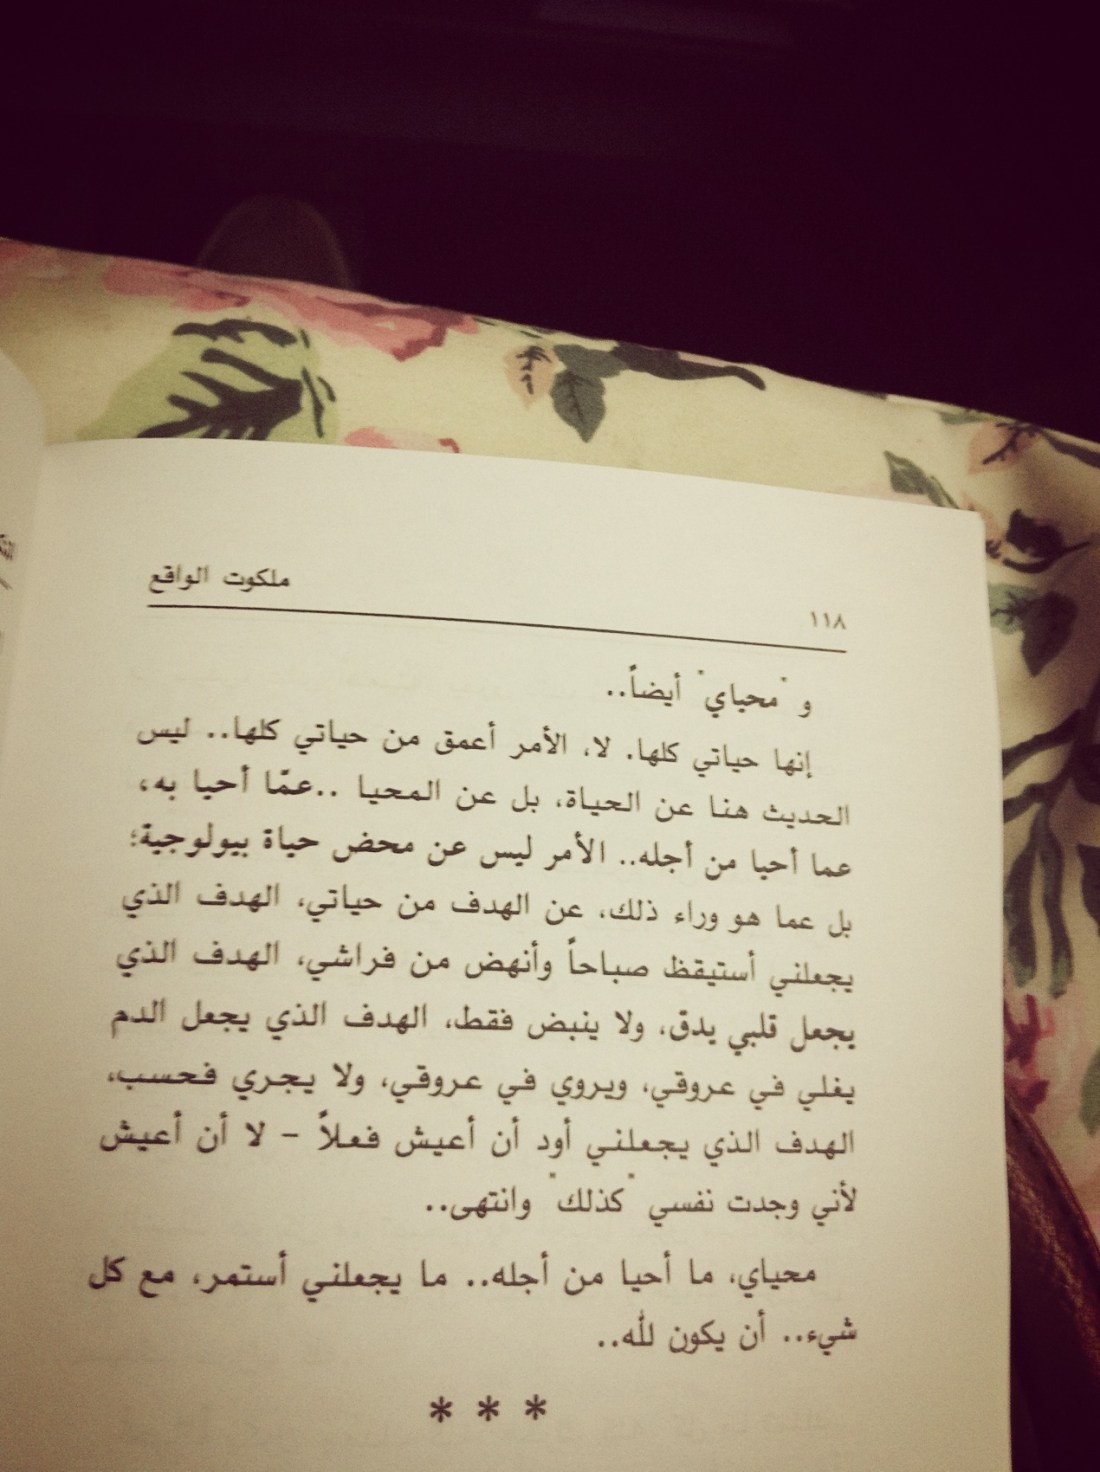 ملكوت الواقع
١١٨
و "محياي" أيضاً..
إنها حياتي كلها. لا، الأمر أعمق من حياتي كلها.. ليس
الحديث هنا عن الحياة، بل عن المحيا ..عمّا أحيا به،
عما أحيا من أجله.. الأمر ليس عن محض حياة بيولوجية؛
بل عما هو وراء ذلك، عن الهدف من حياتي، الهدف الذي
يجعلني أستيقظ صباحاً وأنهض من فراشي، الهدف الذي
يجعل قلبي يدق، ولا ينبض فقط، الهدف الذي يجعل الدم
يغلي في عروقي، ويروي في عروقي، ولا يجري فحسب،
الهدف الذي يجعلني أود أن أعيش فعلاً - لا أن أعيش
لأني وجدت نفسي "كذلك" وانتهى..
محياي، ما أحيا من أجله.. ما يجعلني أستمر، مع كل
شيء.. أن يكون لله..
* * *